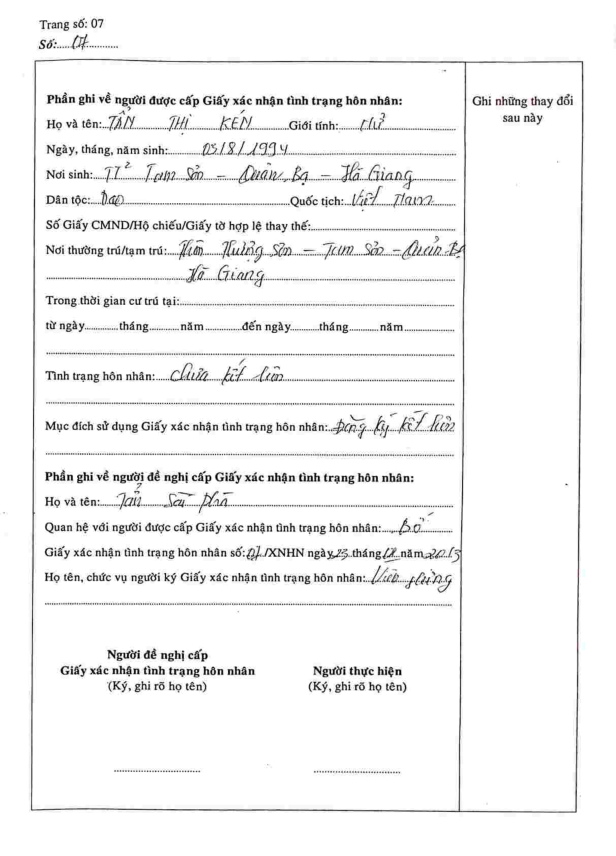 Trang số: 07
Số:.....07............
Phần ghi về người được cấp Giấy xác nhận tình trạng hôn nhân:
Ghi những thay đổi
sau này
Họ và tên: TẨN THỊ KÉN Giới tính: Nữ
Ngày, tháng, năm sinh: 03/8/1994
Nơi sinh: TT² Tam Sơn - Quản Bạ - Hà Giang
Dân tộc: Dao Quốc tịch: Việt Nam
Số Giấy CMND/Hộ chiếu/Giấy tờ hợp lệ thay thế:
Nơi thường trú/tạm trú: Sơn - Tam Sơn - Quản Bạ
Hà Giang
Trong thời gian cư trú tại:
từ ngày............tháng...........năm............đến ngày.........tháng..........năm
Tình trạng hôn nhân: chưa kết hôn
Mục đích sử dụng Giấy xác nhận tình trạng hôn nhân: Đăng ký kết hôn
Phần ghi về người đề nghị cấp Giấy xác nhận tình trạng hôn nhân:
Họ và tên: Tẩn
Quan hệ với người được cấp Giấy xác nhận tình trạng hôn nhân: Bố
Giấy xác nhận tình trạng hôn nhân số: 07/XNHN ngày 23 tháng 12 năm 2013
Họ tên, chức vụ người ký Giấy xác nhận tình trạng hôn nhân:
Người đề nghị cấp
Giấy xác nhận tình trạng hôn nhân
(Ký, ghi rõ họ tên)
Người thực hiện
(Ký, ghi rõ họ tên)